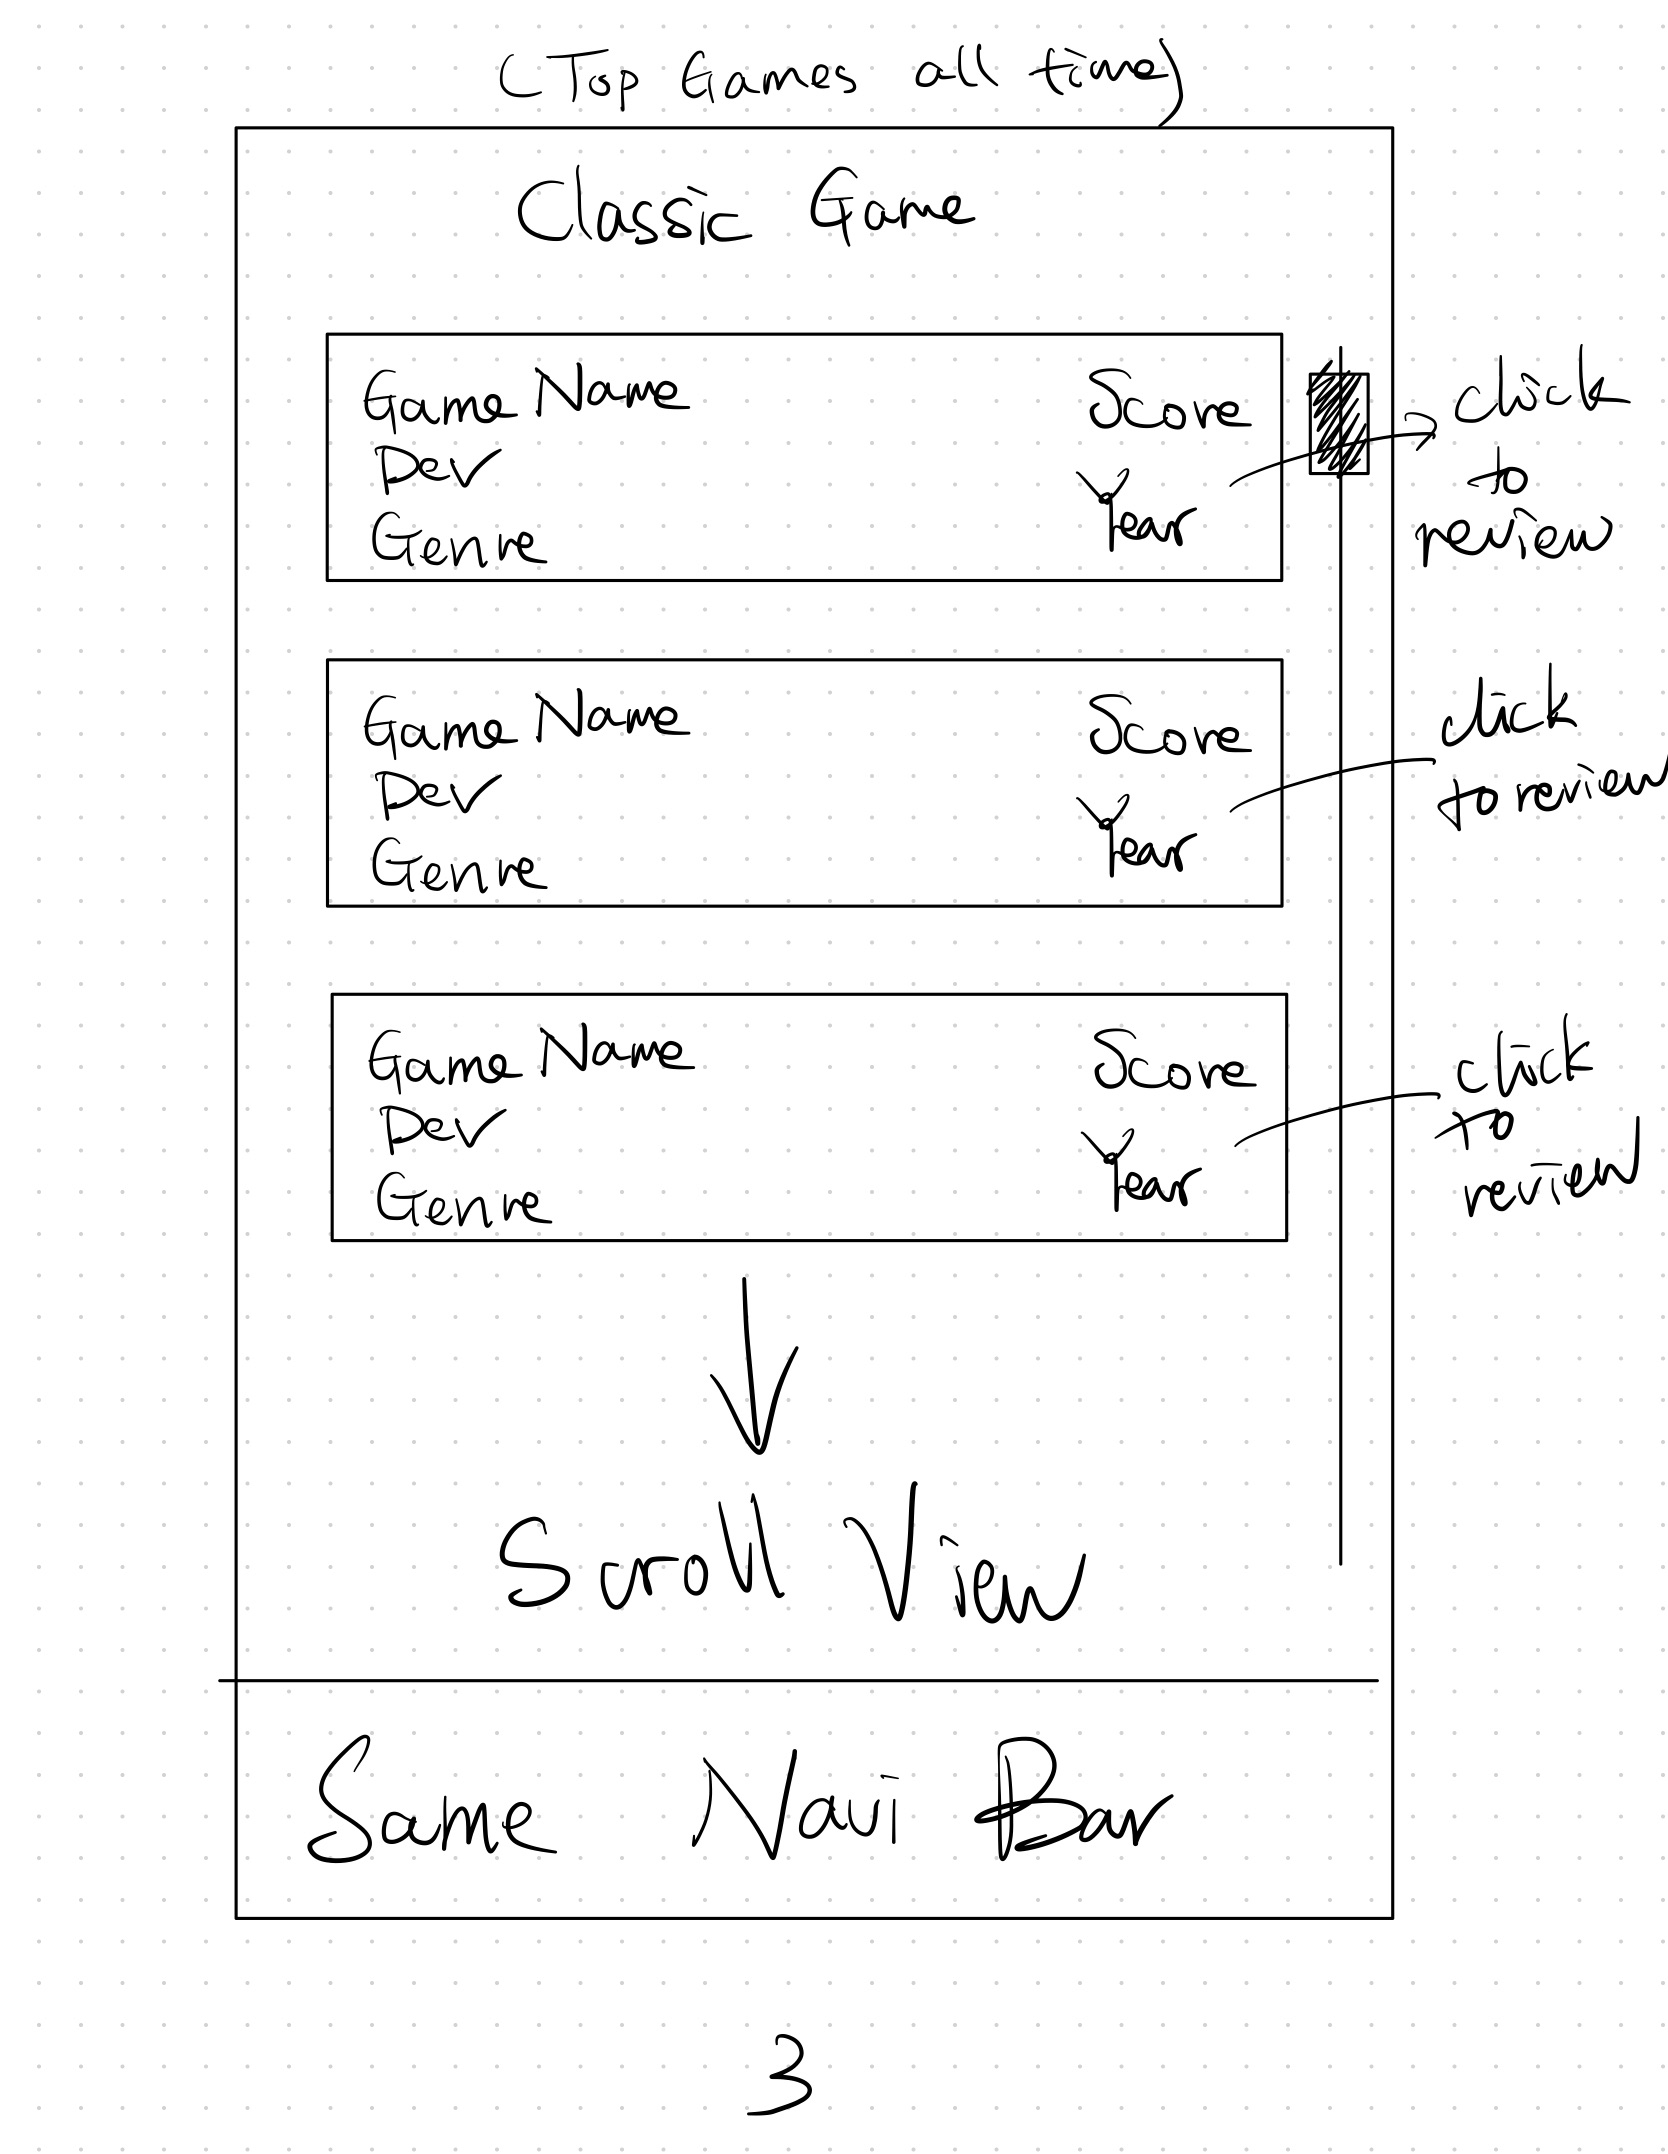 (Top Games all time)
Classic Game
Game Name Score
Dev
Genre Year
click
to
review
Game Name Score
Dev
Genre Year
click
to review
Game Name Score
Dev
Genre Year
click
to
review
Scroll View
Same Navi Bar
3